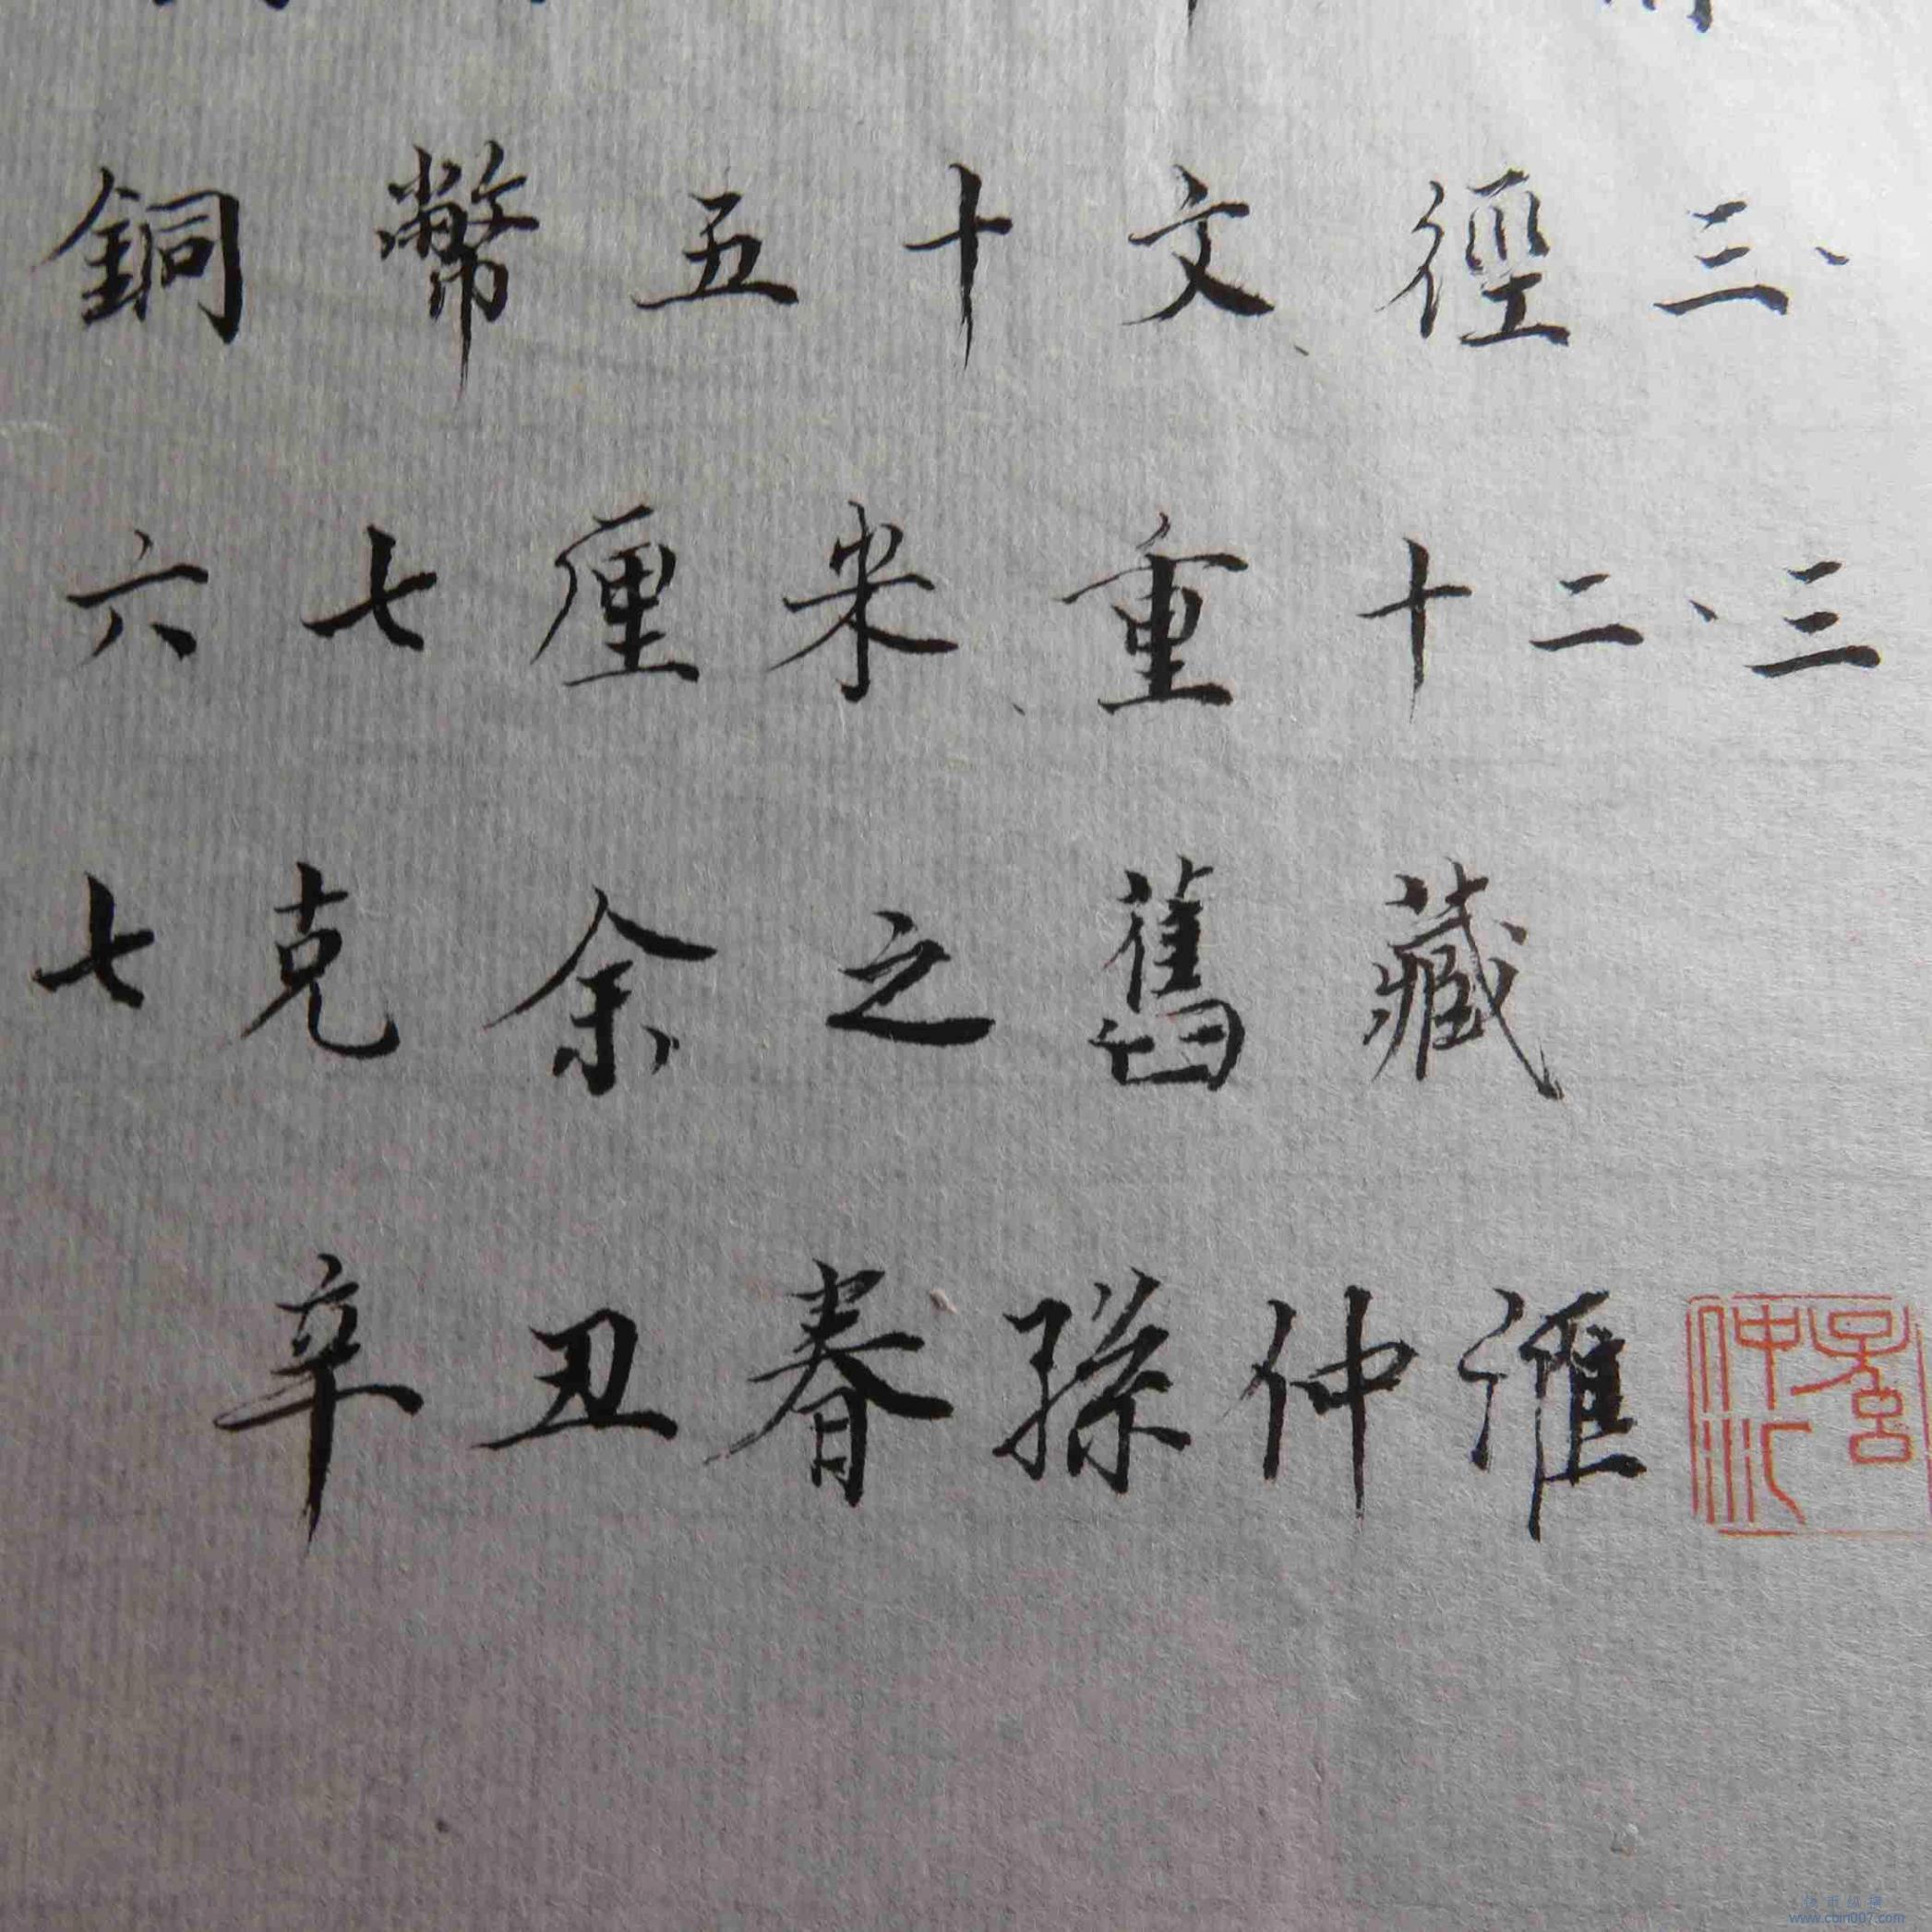 銅幣五十文、徑三、
六七厘米、重十二、三
七克余之舊藏
辛丑春孫仲淮
www.cbin007.com